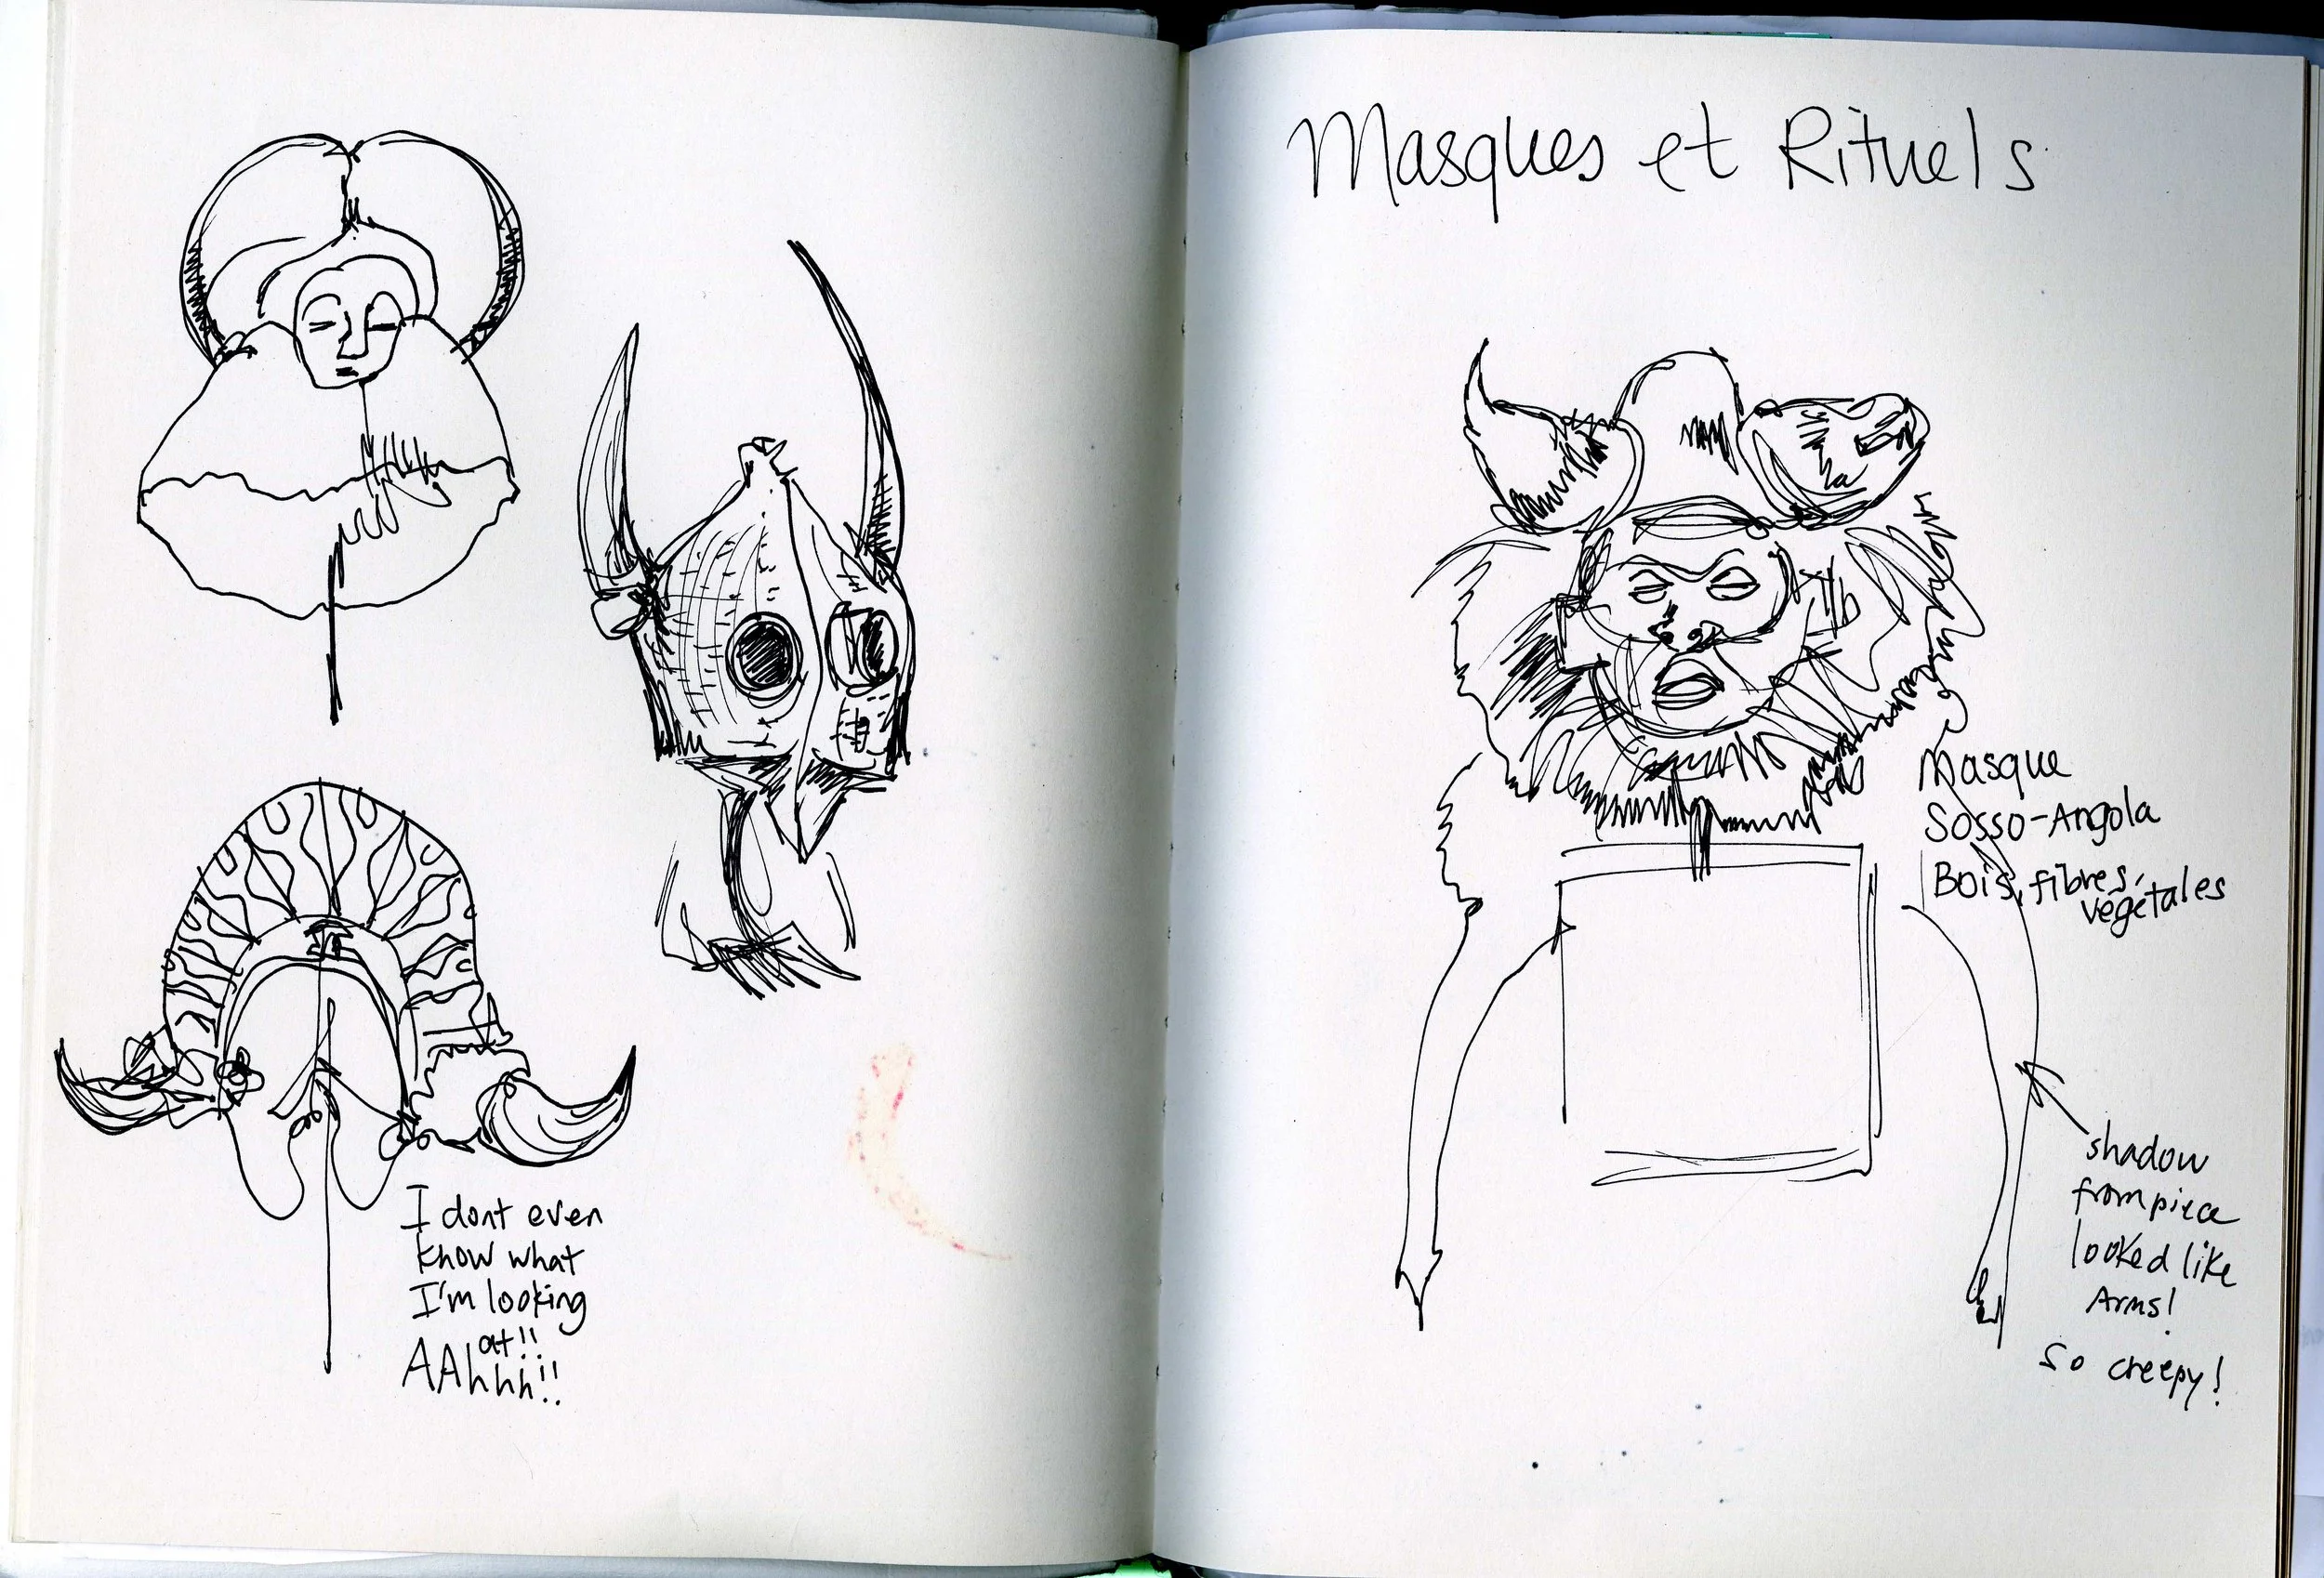 I dont even
know what
I'm looking
at!!
AAhhh!!
Masques et Rituels
Masque
Sosso-Angola
Bois, fibres,
végétales
shadow
from piece
looked like
Arms!
So creepy!